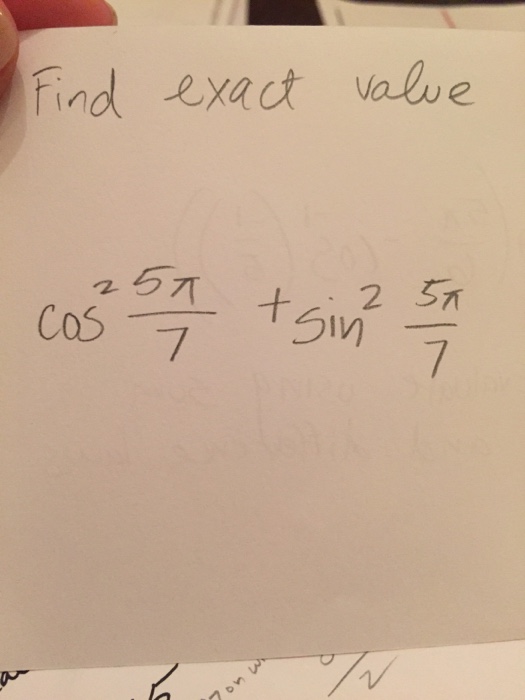 Find exact value
cos² 5π/7 + sin² 5π/7